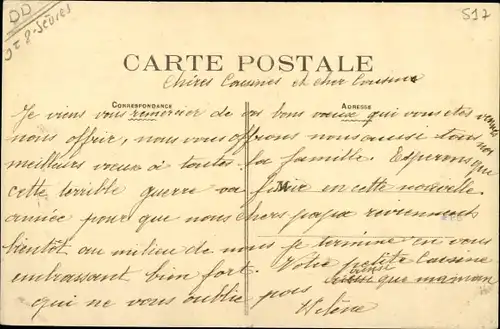 DD
Dx 2-Sèvres
517
CARTE POSTALE
Chères Cousines et cher Cousin
CORRESPONDANCE
ADRESSE
Je viens vous remercier de vos bons voeux qui vous etes venues
nous offrir, nous vous offrons nous aussi tous nos
meilleurs voeux à toutes la famille. Esperons que
cette terrible guerre va finir en cette nouvelle
année pour que nous chers papa reviennent
bientot au milieu de nous je termine en vous
embrassant bien fort. Votre petite Cousine
qui ne vous oublie pas ainsi que maman
Hélène